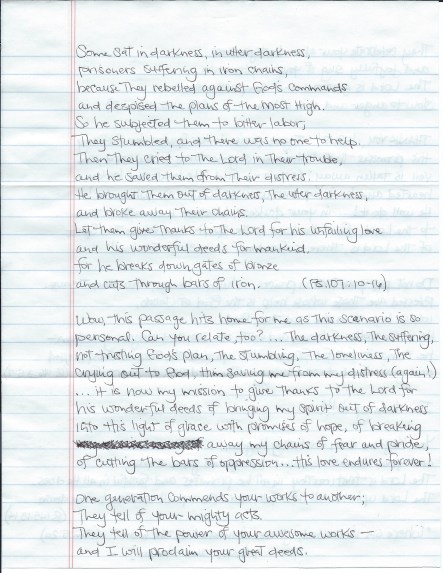 Some sat in darkness, in utter darkness,
prisoners suffering in iron chains,
because they rebelled against God's commands
and despised the plans of the Most High.
So he subjected them to bitter labor;
They stumbled, and there was no one to help.
Then They cried to the Lord in Their trouble,
and he saved them from their distress.
He brought them out of darkness, The utter darkness,
and broke away their chains.
Let them give thanks to the Lord for his unfailing love
and his wonderful deeds for mankind.
for he breaks down gates of bronze
and cuts through bars of iron. (PS. 107:10-16)
Wow, this passage hits home for me as this scenario is so
personal. Can you relate, too? ... The darkness, The suffering,
not trusting God's plan, The stumbling, The loneliness, The
crying out to God, Him saving me from my distress (again!)
... it is now my mission to give thanks to the Lord for
his wonderful deeds of bringing my spirit out of darkness
into this light of grace with promises of hope, of breaking
away my chains of fear and pride,
of cutting the bars of oppression... His love endures forever!
One generation commends your works to another;
They tell of your mighty acts.
They tell of the power of your awesome works —
and I will proclaim your great deeds.